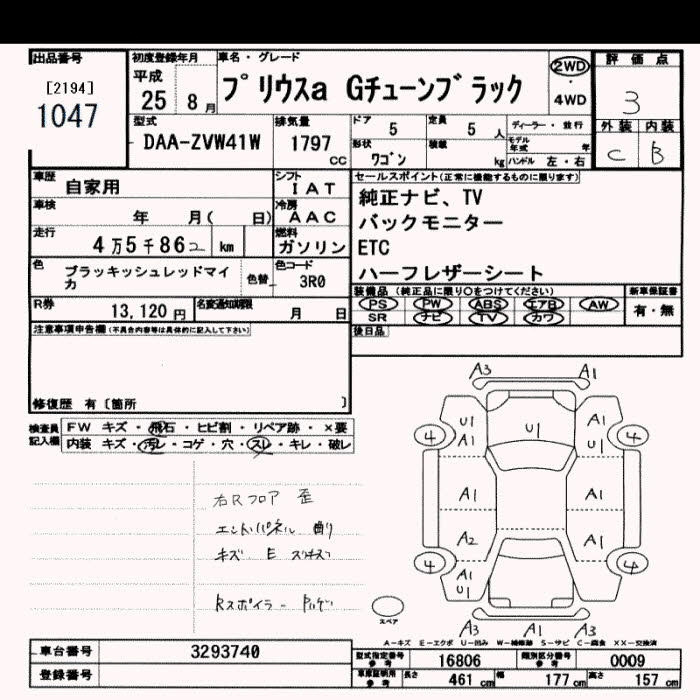 出品番号
[2194]
1047
初度登録年月
平成
25 8月
車名・グレード
プリウスa Gチューンブラック
2WD
・
4WD
評価点
3
外装 内装
C B
型式
DAA-ZVW41W
排気量
1797
cc
ドア 5
定員 5人
形状 ワゴン
積載 kg
ディーラー・並行
モデル年式 年
ハンドル 左・右
車歴 自家用
シフト
IAT
車検
年 月( 日)
冷房
AAC
走行
4万5千862 km
燃料
ガソリン
色 ブラッキッシュレッドマイカ
色替
色コード
3R0
R券 13,120円
名変通知期限 月 日
セールスポイント(正常に機能するものに限ります)
純正ナビ、TV
バックモニター
ETC
ハーフレザーシート
装備品(純正品に限り○をつけてください)
PS PW ABS エアB AW
SR ナビ TV カワ
新車保証書
有・無
後日品
注意事項申告欄(不具合内容等は具体的に記入して下さい)
修復歴 有〔箇所 〕
検査員記入欄
FW キズ・飛石・ヒビ割・リペア跡・×要
内装 キズ・汚レ・コゲ・穴・スレ・キレ・破レ
右Rフロア 歪
エンドパネル
キズ E
Rスポイラー
A3 A1
U1 A1
U1
A1 U1
4 4
A1 A1
A2 A1
4 4
A1 U1
A3 A1 A3
スペア
A-キズ E-エクボ U-凹み W-補修跡 S-サビ C-腐食 XX-交換済
車台番号 3293740
登録番号
型式指定番号 参考 16806
類別区分番号 参考 0009
車庫証明用 参考 長さ 461cm 幅 177cm 高さ 157cm